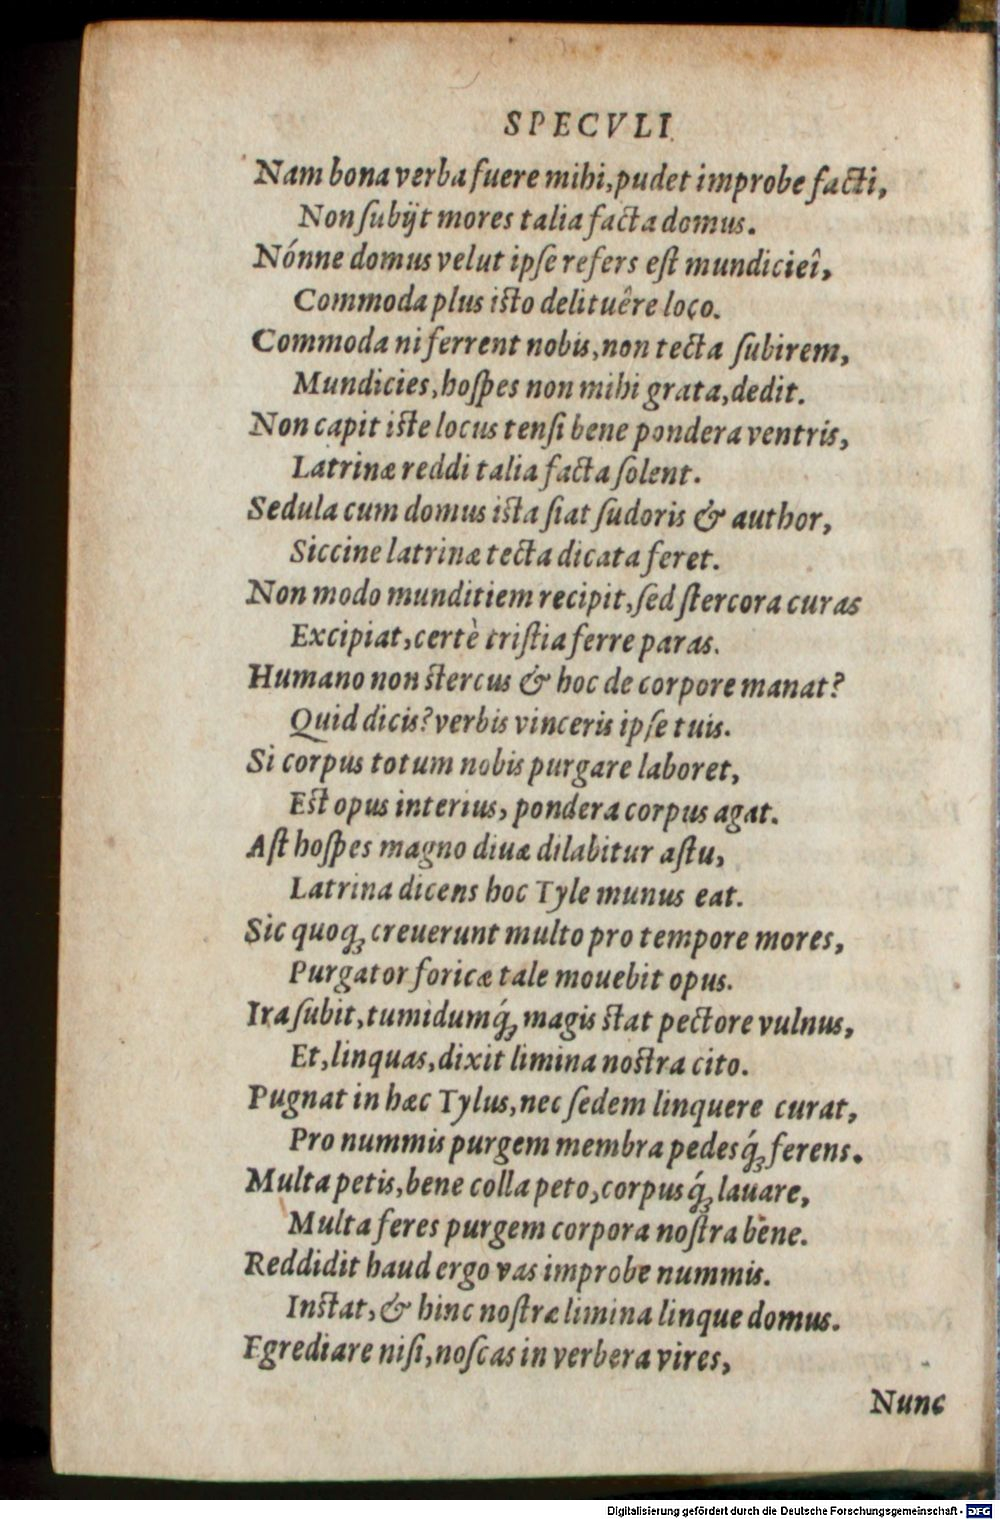 SPECVLI
Nam bona verba fuere mihi, pudet improbe facti,
Non ſubijt mores talia facta domus.
Nónne domus velut ipſe refers eſt mundicieî,
Commoda plus iſto delituêre loço.
Commoda ni ferrent nobis, non tecta ſubirem,
Mundicies, hoſpes non mihi grata, dedit.
Non capit iſte locus tenſi bene pondera ventris,
Latrinæ reddi talia facta ſolent.
Sedula cum domus iſta ſiat ſudoris & author,
Siccine latrinæ tecta dicata feret.
Non modo munditiem recipit, ſed ſtercora curas
Excipiat, certè triſtia ferre paras.
Humano non ſtercus & hoc de corpore manat?
Quid dicis? verbis vinceris ipſe tuis.
Si corpus totum nobis purgare laboret,
Eſt opus interius, pondera corpus agat.
Aſt hoſpes magno diuæ dilabitur aſtu,
Latrina dicens hoc Tyle munus eat.
Sic quoq́; creuerunt multo pro tempore mores,
Purgator foricæ tale mouebit opus.
Ira ſubit, tumidumq́; magis ſtat pectore vulnus,
Et, linquas, dixit limina noſtra cito.
Pugnat in hæc Tylus, nec ſedem linquere curat,
Pro nummis purgem membra pedesq́; ferens.
Multa petis, bene colla peto, corpusq́; lauare,
Multa feres purgem corpora noſtra bene.
Reddidit haud ergo vas improbe nummis.
Inſtat, & hinc noſtræ limina linque domus.
Egrediare niſi, noſcas in verbera vires,
Nunc
Digitalisierung gefördert durch die Deutsche Forschungsgemeinschaft - DFG